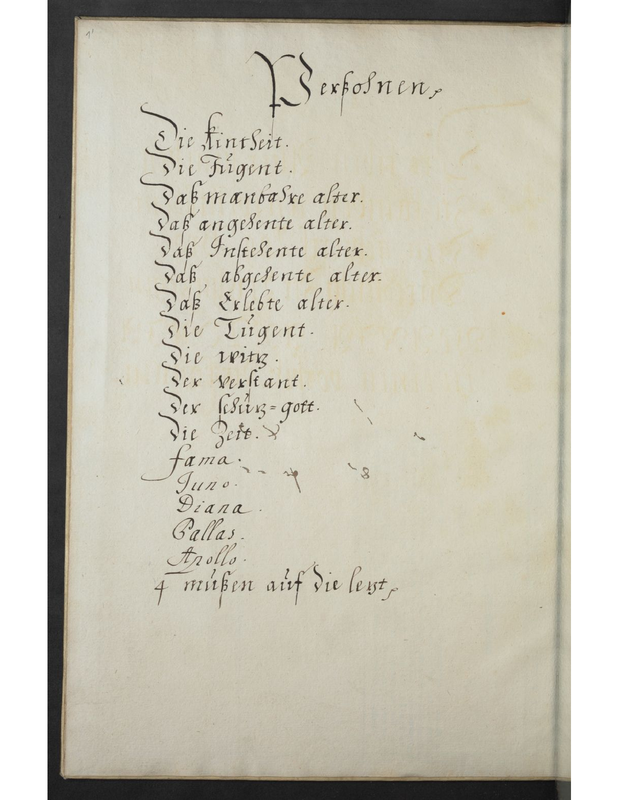 Perßohnen,
Die Kintheit.
Die Jugent.
Daß manbahre alter.
Daß angehente alter.
Daß Instehente alter.
Daß abgehente alter.
Daß Erlebte alter.
Die Tugent.
Die witz.
Der verstant.
Der schuz=gott.
Die Zeit.
fama.
Juno.
Diana.
Pallas.
Apollo.
4 mußen auf die lezt,